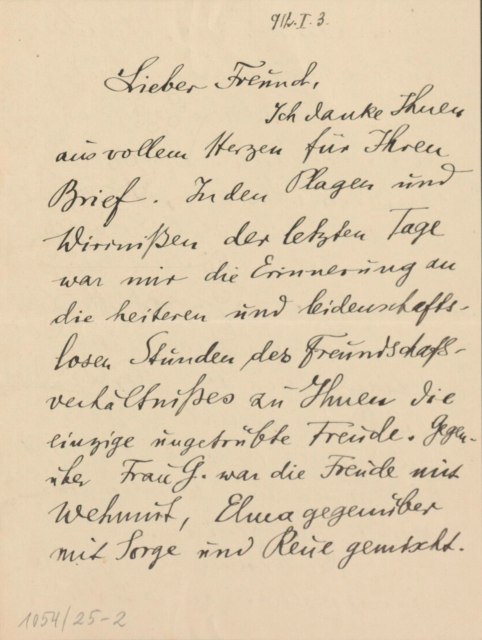 912.I.3.
Lieber Freund,
Ich danke Ihnen
aus vollem Herzen für Ihren
Brief. In den Plagen und
Wirrnißen der letzten Tage
war mir die Erinnerung an
die heiteren und leidenschafts-
losen Stunden des Freundschafs-
verhältnißes zu Ihnen die
einzige ungetrübte Freude. Gegen-
über Frau G. war die Freude mit
Wehmut, Elma gegenüber
mit Sorge und Reue gemischt.
1054/25-2